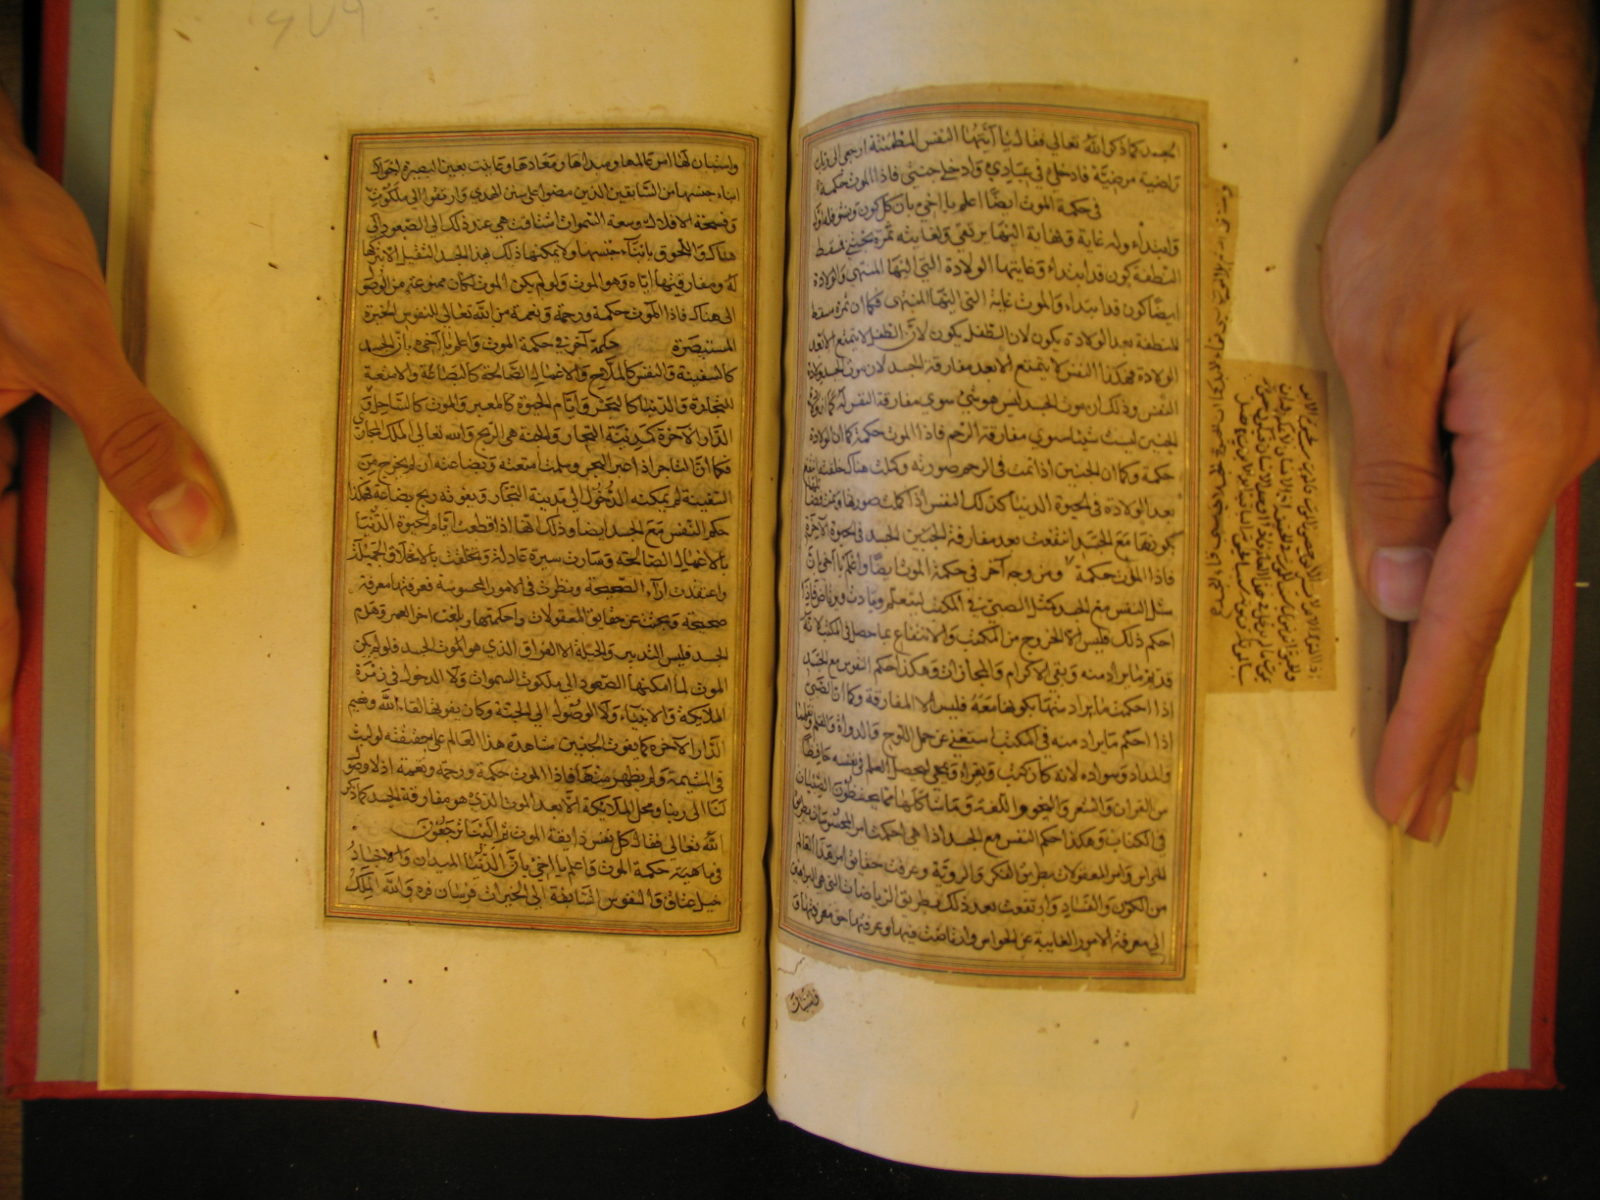 الجسد كما ذكر الله تعالى فقال يا أيتها النفس المطمئنة ارجعي الى ربك
راضية مرضية فادخلي في عبادي وادخلي جنتي فاذا الموت حكمة
في حكمة الموت ايضا اعلم يا اخي بان لكل كون ونشو
وابتداء وله غاية ونهاية اليها يرتقي ولغايته ثمرة تجتنى فمسقط
النطفة كون قد ابتداء وغايتها الولادة التي اليها المنتهى والولادة
ايضا كون قد ابتداء والموت غاية التي اليها المنتهى فكما ان ثمرة مسقط
النطفة بعد الولادة يكون لان الطفل يكون لان الطفل لا يتمتع الا بعد
الولادة فهكذا النفس لا يتمتع الا بعد مفارقة الجسد لان موت الجسد ولادة
النفس وذلك ان موت الجسد ليس هو شئ سوى مفارقة النفس له كما ان ولادة
الجنين ليست شيئا سوى مفارقة الرحم فاذا الموت حكمة كما ان الولادة
حكمة وكما ان الجنين اذا تمت في الرحم صورته وكملت هناك خلقته انتفع
بعد الولادة في الحيوة الدنيا كذلك النفس اذا كملت صورتها وتمت فضائلها
بكونها مع الجسد انتفعت بعد مفارقة الجسد في الحيوة الآخرة
فاذا الموت حكمة ومن وجه آخر في حكمة الموت ايضا واعلم يا اخي ان
مثل النفس مع الجسد كمثل الصبي في المكتب ليتعلم ويتادب ويرتاض فاذا
احكم ذلك فليس الا الخروج من المكتب والانتفاع بما حصل في المكتب لانه
قد تم ما يراد منه وبقي الاكرام والمجازات وهكذا حكم النفوس مع الجسد
اذا احكمت ما يراد منها بكونها معه فليس الا المفارقة وكما ان الصبي
اذا احكم ما يراد منه في المكتب استغنى عن حمل اللوح والدواة والقلم
والمداد وسواده لانه كان يكتب ويقراء ويمحي ليحصل العلم في نفسه حافظا
من القران والشعر والنحو واللغة وما شاكلها مما يحفظون الصبيان
في الكتاب وهكذا حكم النفس مع الجسد اذا هي احكمت امر المحسوسات بطريق
الحواس وامر المعقولات بطريق الفكر والروية وعرفت حقايق امر هذا العالم
من الكون والفساد وارتقعت بعد ذلك بطريق الرياضيات التي هي البراهين
الى معرفة الامور الغايبة عن الحواس وارتاضت فيها وعرفتها حق معرفتها و
واستبان لها امر عالمها ومبداها ومعادها وعاينت بعين البصيرة احوال
ابناء جنسها من السابقين الذين مضوا على سنن الهدى وارتقوا الى ملكوت
وفسحة الافلاك وسعة السموات اشتاقت هي عند ذلك الى الصعود الى
هناك واللحوق بابناء جنسها ولا يمكنها ذلك بهذا الجسد الثقيل الا بتركها
له ومفارقتها اياه وهو الموت ولو لم يكن الموت لكان ممنوعة من الوصول
الى هناك فاذا الموت حكمة ورحمة ونعمة من الله تعالى للنفوس الخيرة
المستبصرة حكمة آخر في حكمة الموت واعلم يا اخي بان الجسد
كالسفينة والنفس كالملاح والاعمال الصالحة كالبضاعة والامتعة
للتجارة والدنيا كالبحر وايام الحيوة كالمعبر والموت كالساحل و
الدار الآخرة كمدينة التجار والجنة هي الربح والله تعالى الملك المجازي
فكما ان التاجر اذا عبر البحر وسلمت امتعته وبضاعته ان لم يخرج من
السفينة لم يمكنه الدخول الى مدينة التجار ويفوته ربح بضاعة فهكذا
حكم النفس مع الجسد ايضا وذلك انها اذا قطعت ايام الحيوة الدنيا
بالاعمال الصالحة وسارت سيرة عادلة وتخلقت بالاخلاق الجميلة
واعتقدت آراء الصحيحة ونظرت في الامور المحسوسة فعرفتها معرفة
صحيحة وبحثت عن حقايق المعقولات واحكمتها وبلغت اخر العمر وهرم
الجسد فليس التدبير والحيلة الا الفراق الذي هو الموت الجسد فلو لم يكن
الموت لما امكنها الصعود الى ملكوت السموات ولا الدخول في زمرة
الملائكة والانبياء ولا الوصول الى الجنة وكان يفوتها لقاء الله ونعيم
الدار الآخرة كما يفوت الجنين مشاهدة هذا العالم على حقيقته لو لبث
في المشيمة ولم يظهر منها فاذا الموت حكمة ورحمة ونعمة اذ لا وصول
لنا الى ربنا ومحل الملائكة الا بعد الموت الذي هو مفارقة الجسد كما ذكر
الله تعالى فقال كل نفس ذايقة الموت ثم الينا ترجعون
في ماهية حكمة الموت فاعلم يا اخي بان الدنيا الميدان والاجساد
خيل عتاق والنفوس السابقة الى الخيرات فرسان فره والله الملك